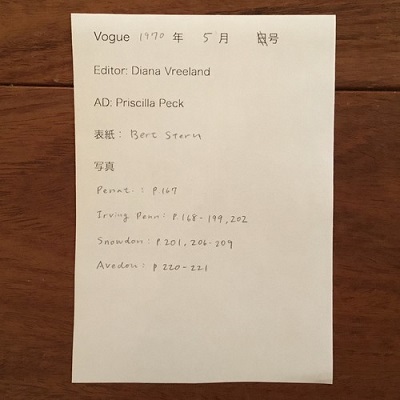 Vogue 1970 年 5 月 号
Editor: Diana Vreeland
AD: Priscilla Peck
表紙： Bert Stern
写真
Penati : p.167
Irving Penn : p.168-199, 202
Snowdon : p.201, 206-209
Avedon : p 220-221